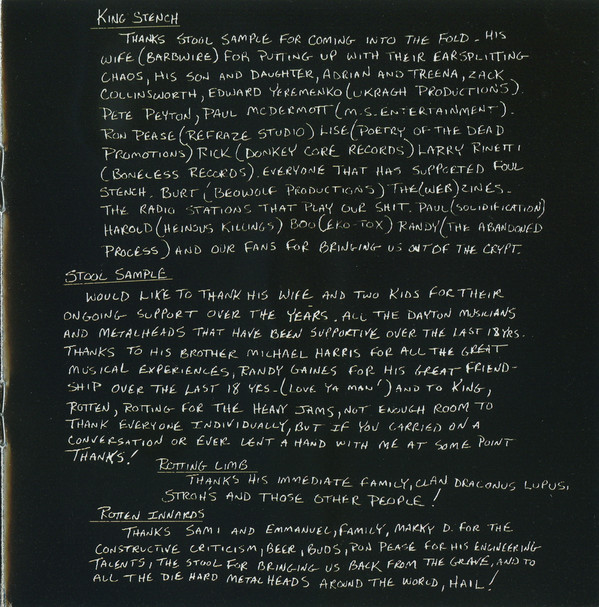 KING STENCH
THANKS STOOL SAMPLE FOR COMING INTO THE FOLD - HIS
WIFE (BARBWIRE) FOR PUTTING UP WITH THEIR EARSPLITTING
CHAOS, HIS SON AND DAUGHTER, ADRIAN AND TREENA, ZACK
COLLINSWORTH, EDWARD YEREMENKO (UKRAGH PRODUCTIONS).
PETE PEYTON, PAUL MCDERMOTT (M.S. ENTERTAINMENT).
RON PEASE (REFRAZE STUDIO) LISE (POETRY OF THE DEAD
PROMOTIONS) RICK (DONKEY CORE RECORDS) LARRY RINETTI
(BONELESS RECORDS). EVERYONE THAT HAS SUPPORTED FOUL
STENCH. BURT (BEOWOLF PRODUCTIONS) THE (WEB) ZINES -
THE RADIO STATIONS THAT PLAY OUR SHIT. PAUL (SOLIDIFICATION)
HAROLD (HEINOUS KILLINGS) BOO (EKO-TOX) RANDY (THE ABANDONED
PROCESS) AND OUR FANS FOR BRINGING US OUT OF THE CRYPT.
STOOL SAMPLE
WOULD LIKE TO THANK HIS WIFE AND TWO KIDS FOR THEIR
ONGOING SUPPORT OVER THE YEARS. ALL THE DAYTON MUSICIANS
AND METALHEADS THAT HAVE BEEN SUPPORTIVE OVER THE LAST 18 YRS.
THANKS TO HIS BROTHER MICHAEL HARRIS FOR ALL THE GREAT
MUSICAL EXPERIENCES, RANDY GAINES FOR HIS GREAT FRIEND-
SHIP OVER THE LAST 18 YRS - (LOVE YA MAN') AND TO KING,
ROTTEN, ROTTING FOR THE HEAVY JAMS, NOT ENOUGH ROOM TO
THANK EVERYONE INDIVIDUALLY, BUT IF YOU CARRIED ON A
CONVERSATION OR EVER LENT A HAND WITH ME AT SOME POINT
THANKS!
ROTTING LIMB
THANKS HIS IMMEDIATE FAMILY, CLAN DRACONUS LUPUS,
STROHS AND THOSE OTHER PEOPLE!
ROTTEN INNARDS
THANKS SAMI AND EMMANUEL, FAMILY, MARKY D. FOR THE
CONSTRUCTIVE CRITICISM, BEER, BUDS, RON PEASE FOR HIS ENGINEERING
TALENTS, THE STOOL FOR BRINGING US BACK FROM THE GRAVE, AND TO
ALL THE DIE HARD METAL HEADS AROUND THE WORLD, HAIL!